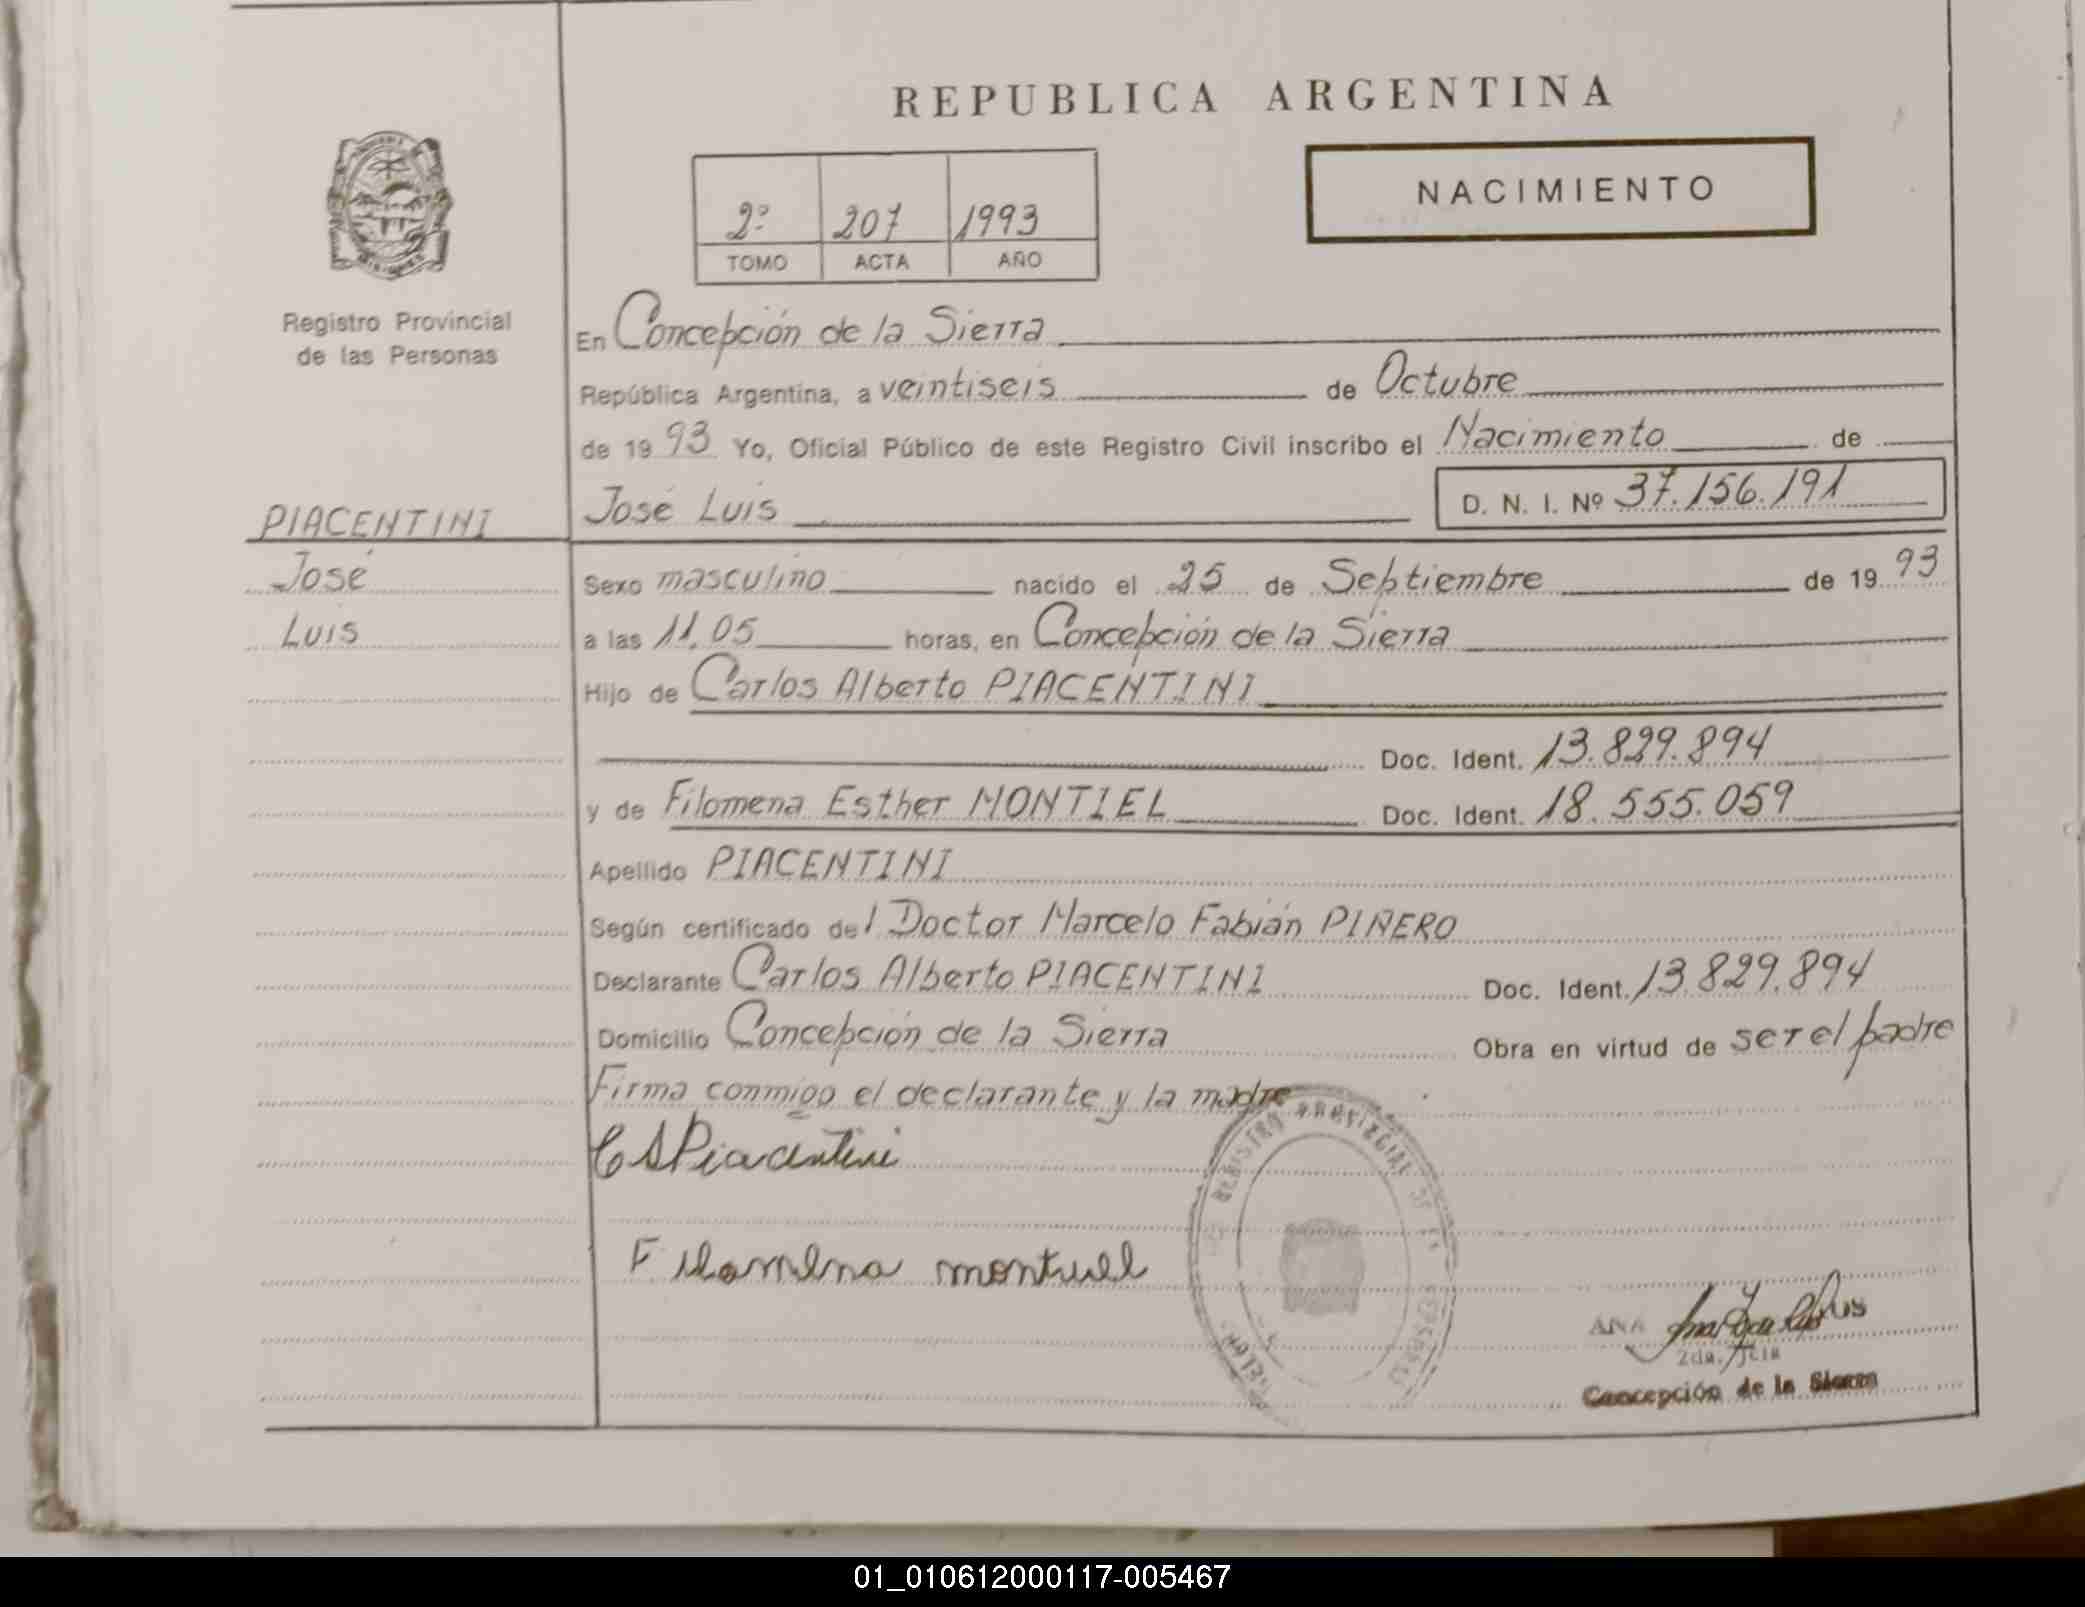 REPUBLICA ARGENTINA
NACIMIENTO
2º 207 1993
TOMO ACTA AÑO
Registro Provincial
de las Personas
En Concepción de la Sierra
República Argentina, a veintiseis de Octubre
de 1993 Yo, Oficial Público de este Registro Civil inscribo el Nacimiento de
José Luis D. N. I. Nº 37.156.191
PIACENTINI
José
Luis
Sexo masculino nacido el 25 de Septiembre de 1993
a las 11,05 horas, en Concepción de la Sierra
Hijo de Carlos Alberto PIACENTINI
Doc. Ident. 13.829.894
y de Filomena Esther MONTIEL Doc. Ident. 18.555.059
Apellido PIACENTINI
Según certificado del Doctor Marcelo Fabián PIÑERO
Declarante Carlos Alberto PIACENTINI Doc. Ident. 13.829.894
Domicilio Concepción de la Sierra Obra en virtud de ser el padre
Firma conmigo el declarante y la madre
C A Piacentini
Filomena montiel
REGISTRO PROVINCIAL DE
ANA
Concepción de la Sierra
01_010612000117-005467